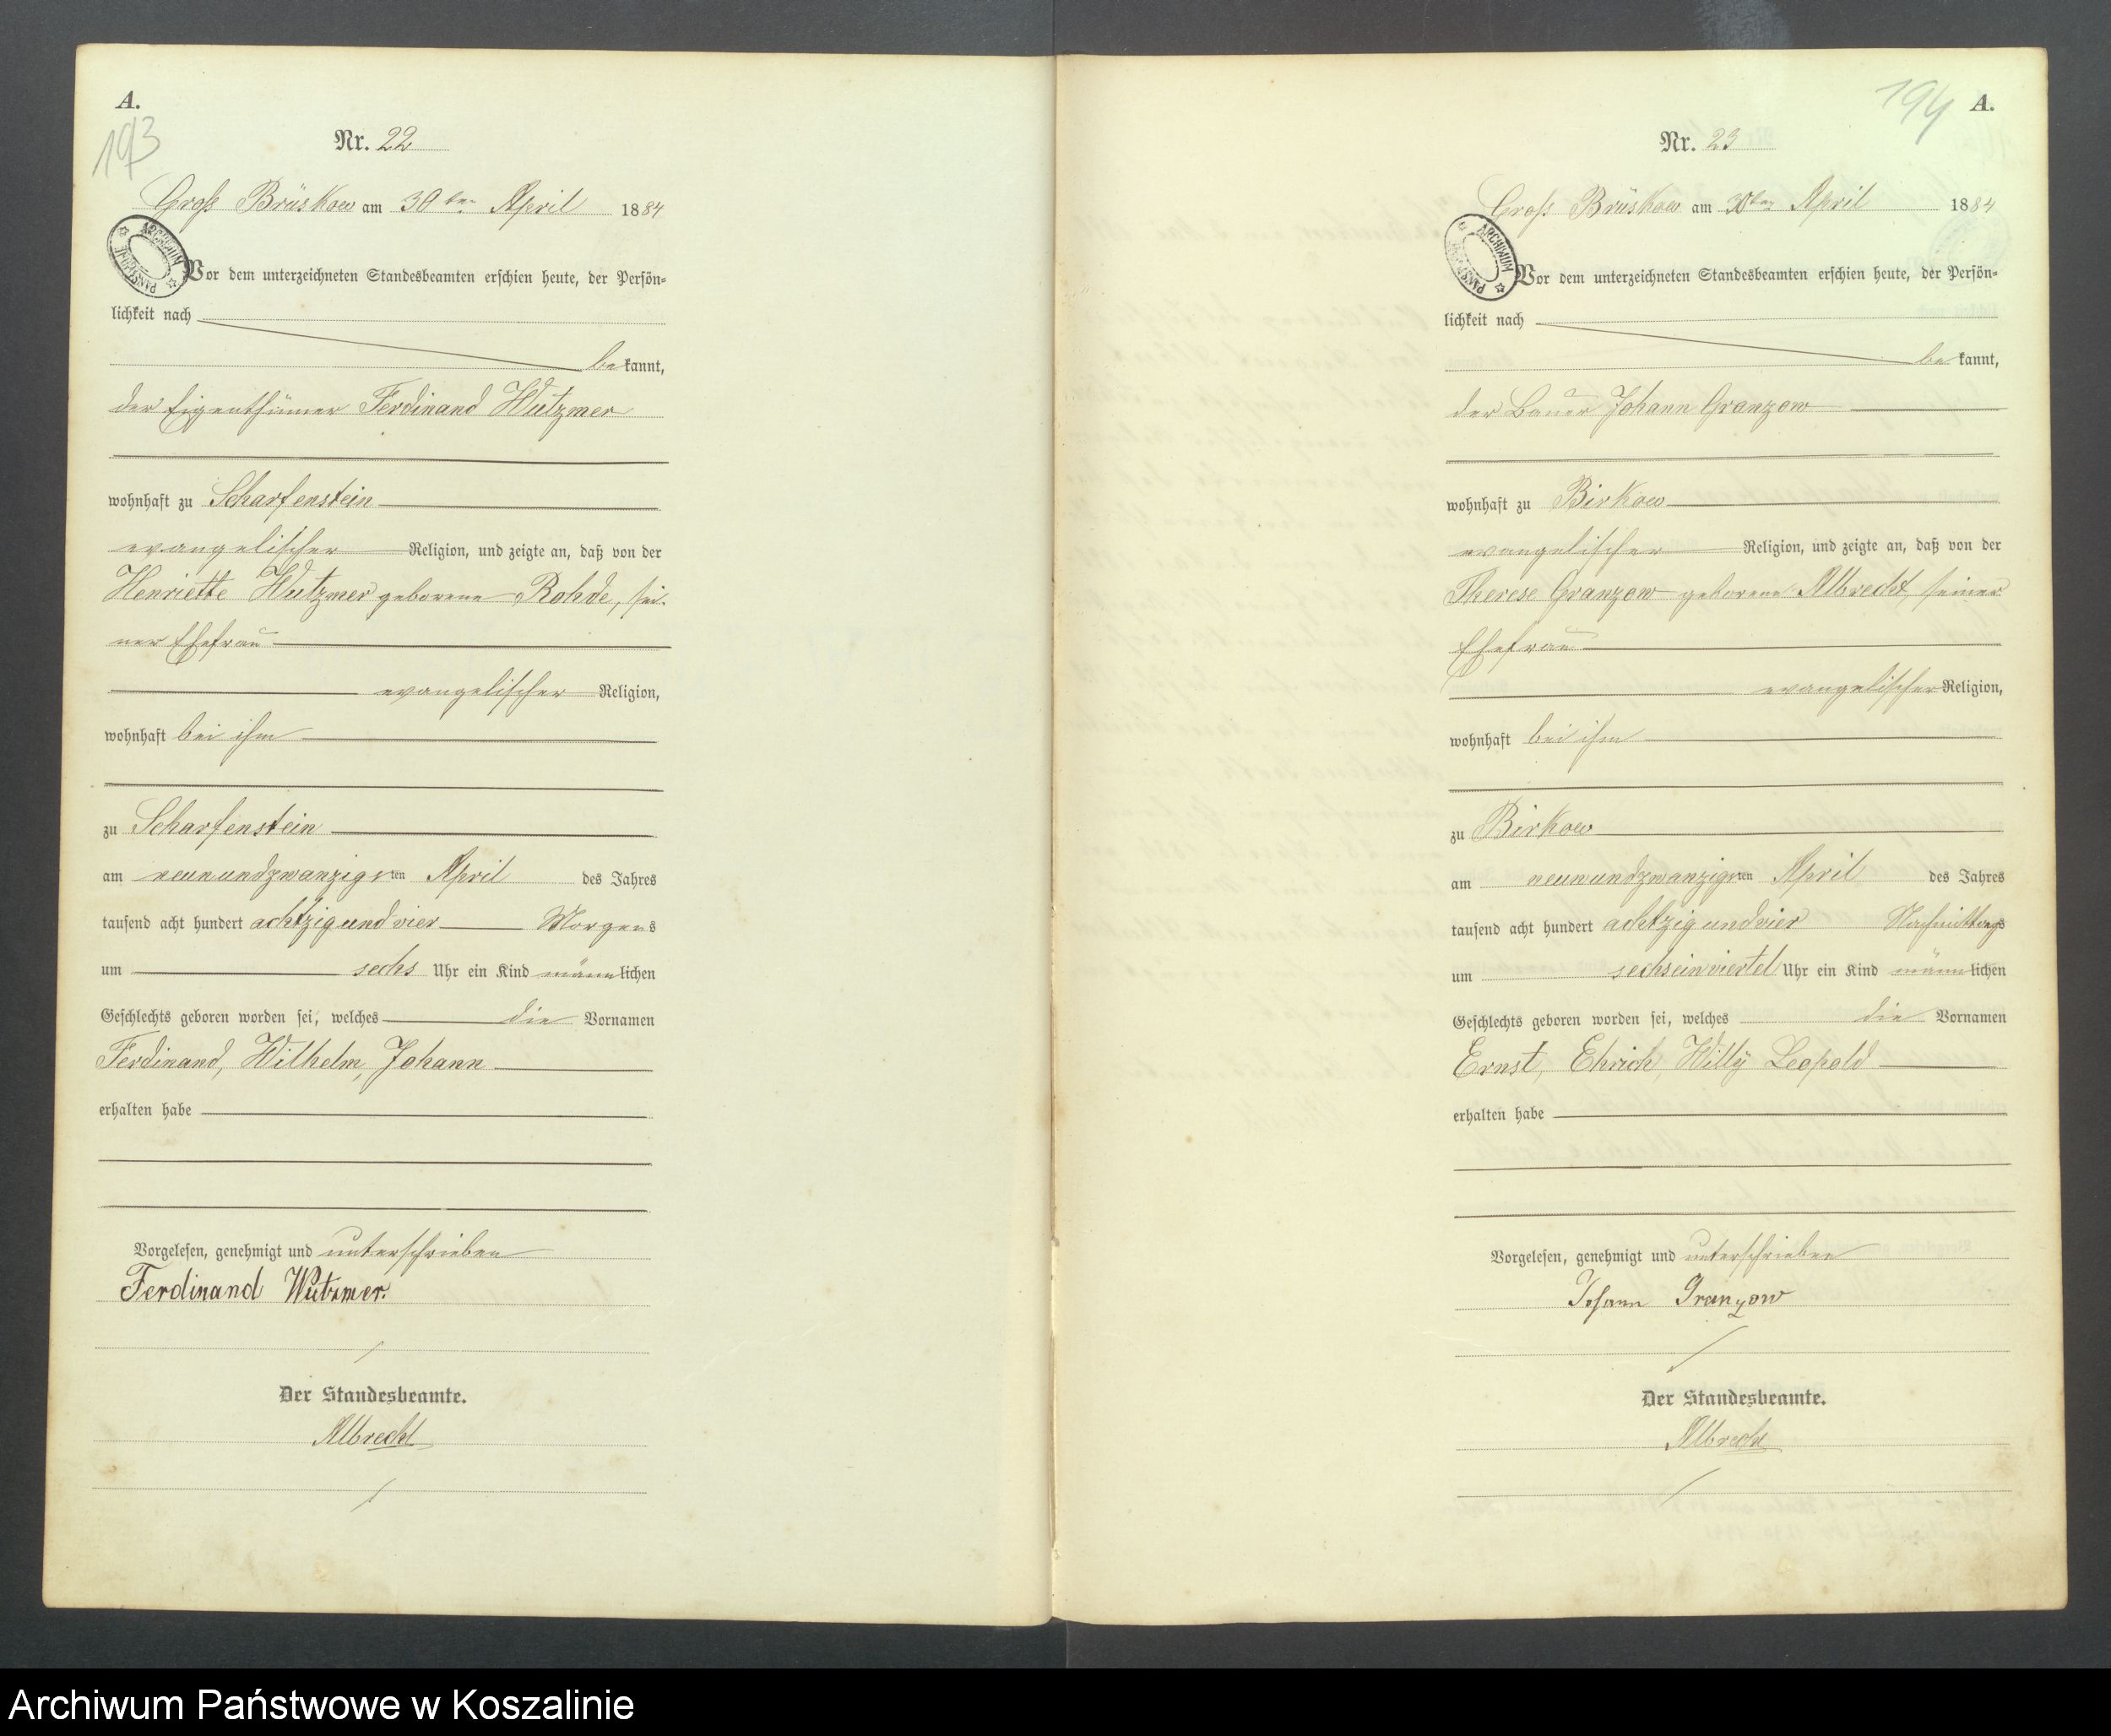 A.
193
Nr. 22
Groß Brüskow am 30ten April 1884
ARCHIWUM PAŃSTWOWE
Vor dem unterzeichneten Standesbeamten erschien heute, der Persön-
lichkeit nach
bekannt,
der Eigenthümer Ferdinand Wutzmer
wohnhaft zu Scharfenstein
evangelischer Religion, und zeigte an, daß von der
Henriette Wutzmer geborene Rohde, sei-
ner Ehefrau
evangelischer Religion,
wohnhaft bei ihm
zu Scharfenstein
am neunundzwanzigsten April des Jahres
tausend acht hundert achtzig und vier Morgens
um sechs Uhr ein Kind männlichen
Geschlechts geboren worden sei, welches die Vornamen
Ferdinand, Wilhelm, Johann
erhalten habe
Vorgelesen, genehmigt und unterschrieben
Ferdinand Wutzmer.
Der Standesbeamte.
Albrecht
194
A.
Nr. 23
Groß Brüskow am 30ten April 1884
ARCHIWUM PAŃSTWOWE
Vor dem unterzeichneten Standesbeamten erschien heute, der Persön-
lichkeit nach
bekannt,
der Bauer Johann Granzow
wohnhaft zu Birkow
evangelischer Religion, und zeigte an, daß von der
Therese Granzow geborene Albrecht, seiner
Ehefrau
evangelischer Religion,
wohnhaft bei ihm
zu Birkow
am neunundzwanzigsten April des Jahres
tausend acht hundert achtzig und vier Nachmittags
um sechseinviertel Uhr ein Kind männlichen
Geschlechts geboren worden sei, welches die Vornamen
Ernst, Ehrich, Willÿ Leopold
erhalten habe
Vorgelesen, genehmigt und unterschrieben
Johann Granzow
Der Standesbeamte.
Albrecht
Archiwum Państwowe w Koszalinie